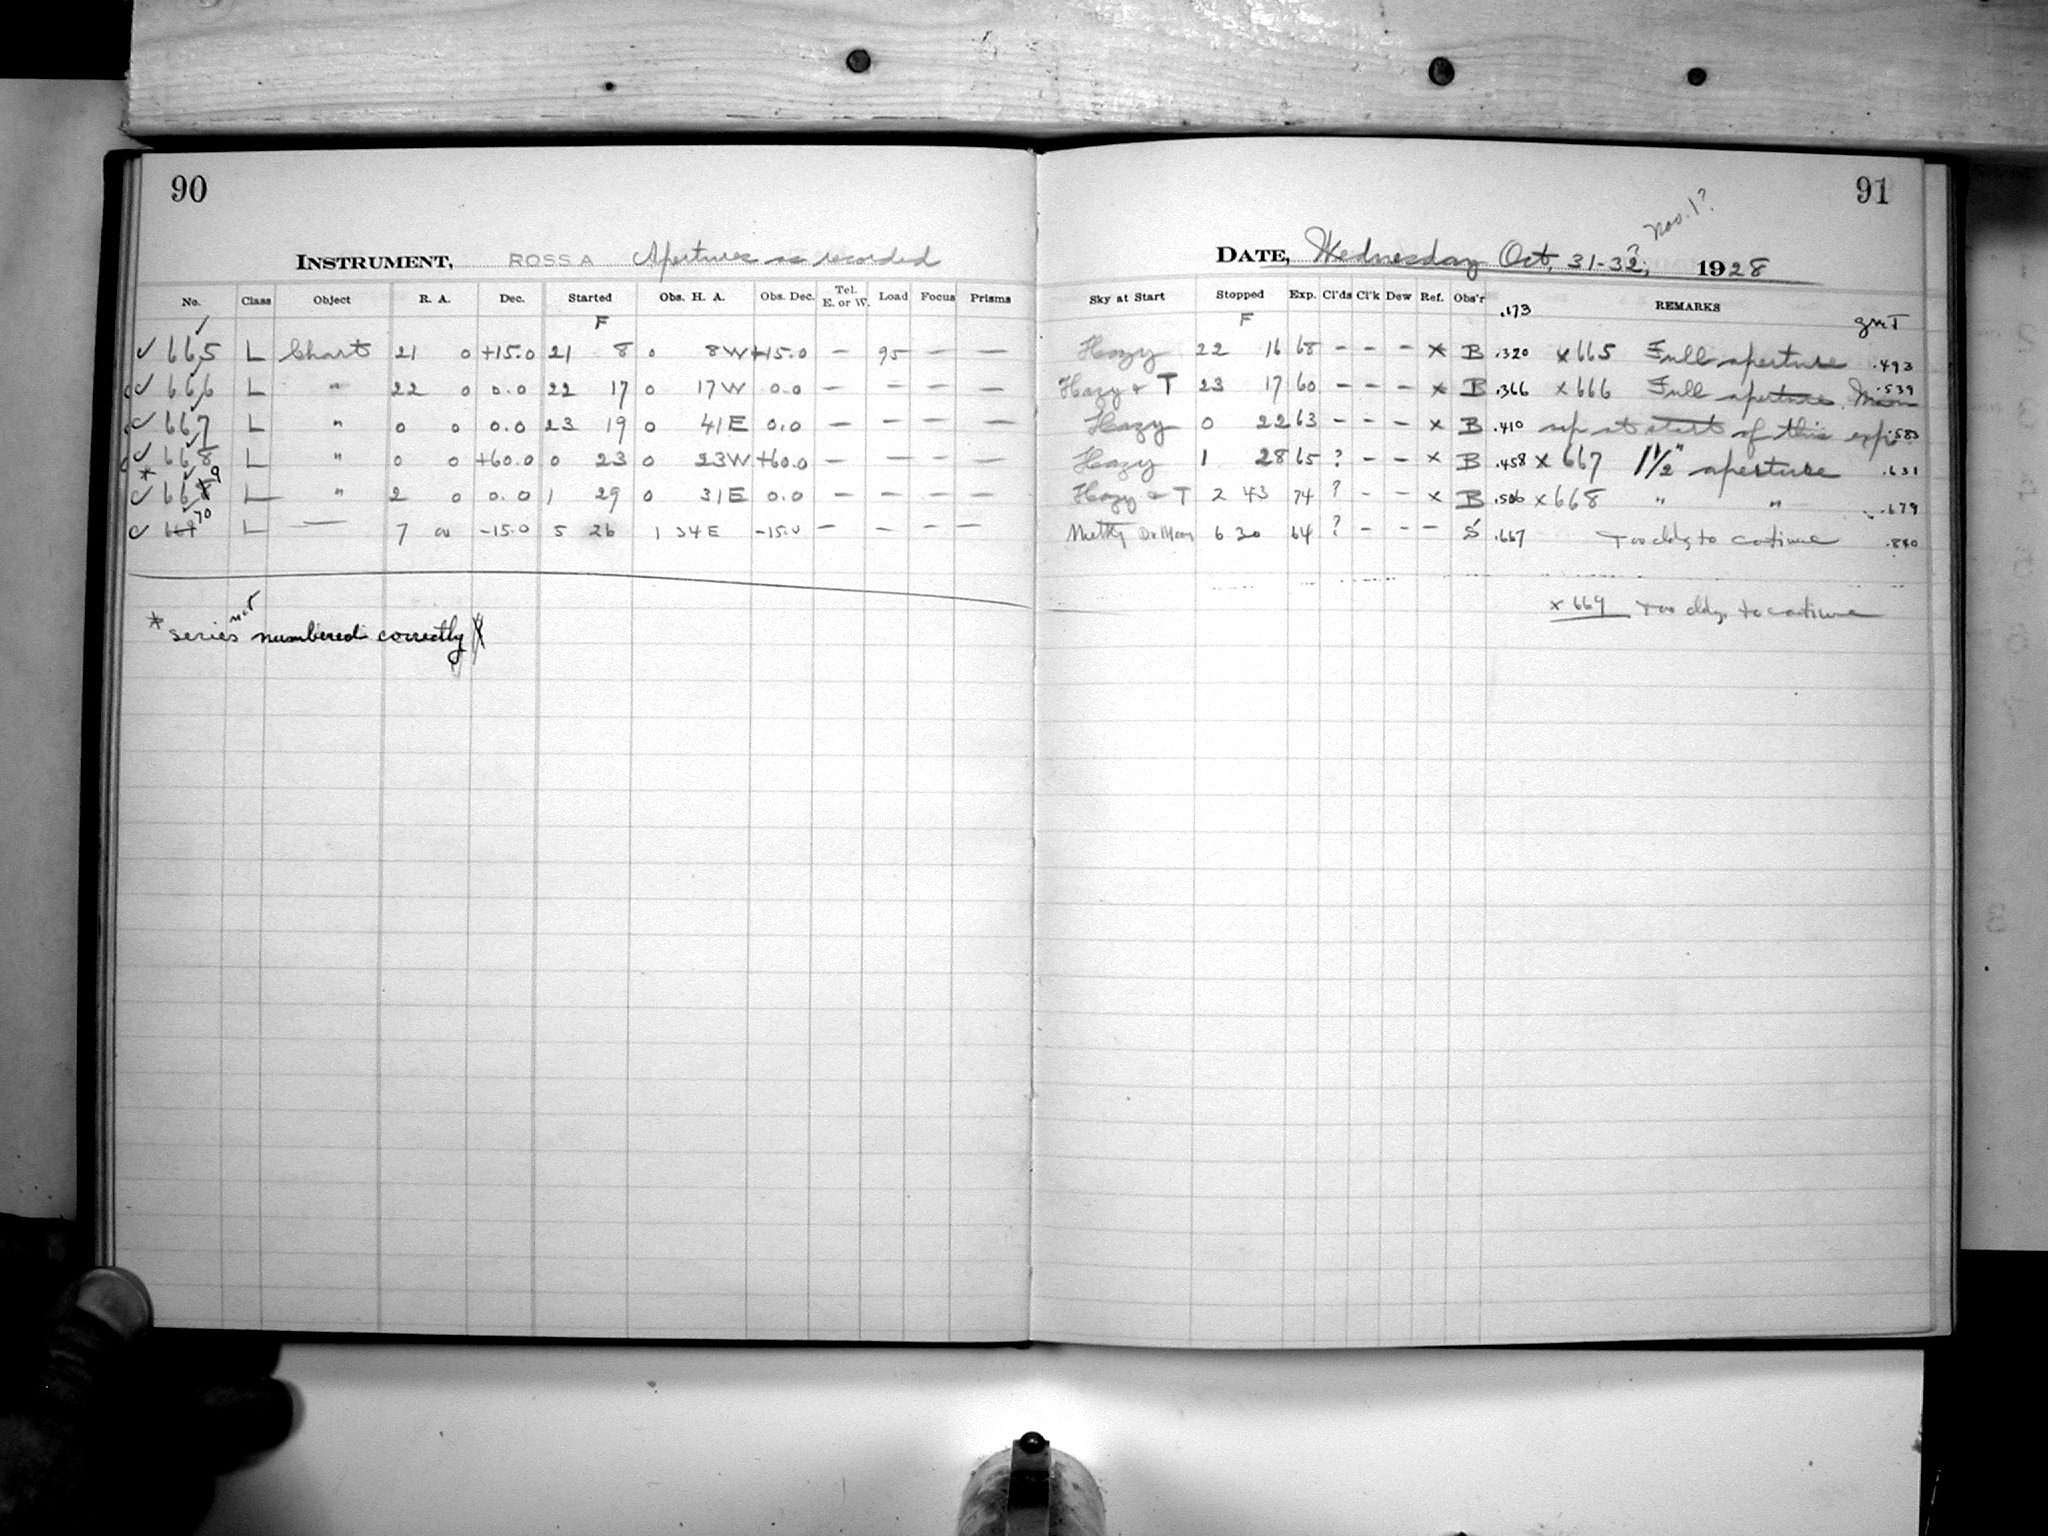 90
INSTRUMENT, ROSS A Apertures as recorded
No. Class Object R. A. Dec. Started Obs. H. A. Obs. Dec. Tel. E. or W. Load Focus Prisms
F
✓ 665 L Chart 21 0 +15.0 21 8 0 8W +15.0 — 95 — —
✓ 666 L " 22 0 0.0 22 17 0 17W 0.0 — — — —
✓ 667 L " 0 0 0.0 23 19 0 41E 0.0 — — — —
✓ 668 L " 0 0 +60.0 0 23 0 23W +60.0 — — — —
* 9
✓ 668 L " 2 0 0.0 1 29 0 31E 0.0 — — — —
70
✓ 669 L — 7 00 -15.0 5 26 1 34E -15.0 — — — —
* series not numbered correctly
91
Nov. 1?
DATE, Wednesday Oct, 31-32, 1928
Sky at Start Stopped Exp. Cl'ds Cl'k Dew Ref. Obs'r .173 REMARKS
F GMT
Hazy 22 16 68 – – – * B .320 x665 Full aperture .493
Hazy + T 23 17 60 – – – * B .366 x666 Full aperture. Moon .539
Hazy 0 22 63 – – – x B .410 up at start of this exp. .583
Hazy 1 28 65 ? – – x B .458 x 667 1½" aperture .631
Hazy + T 2 43 74 ? – – x B .506 x668 " " .679
Moon 6 30 64 ? – – – S .667 Too cldy to continue .840
x 669 Too cldy to continue